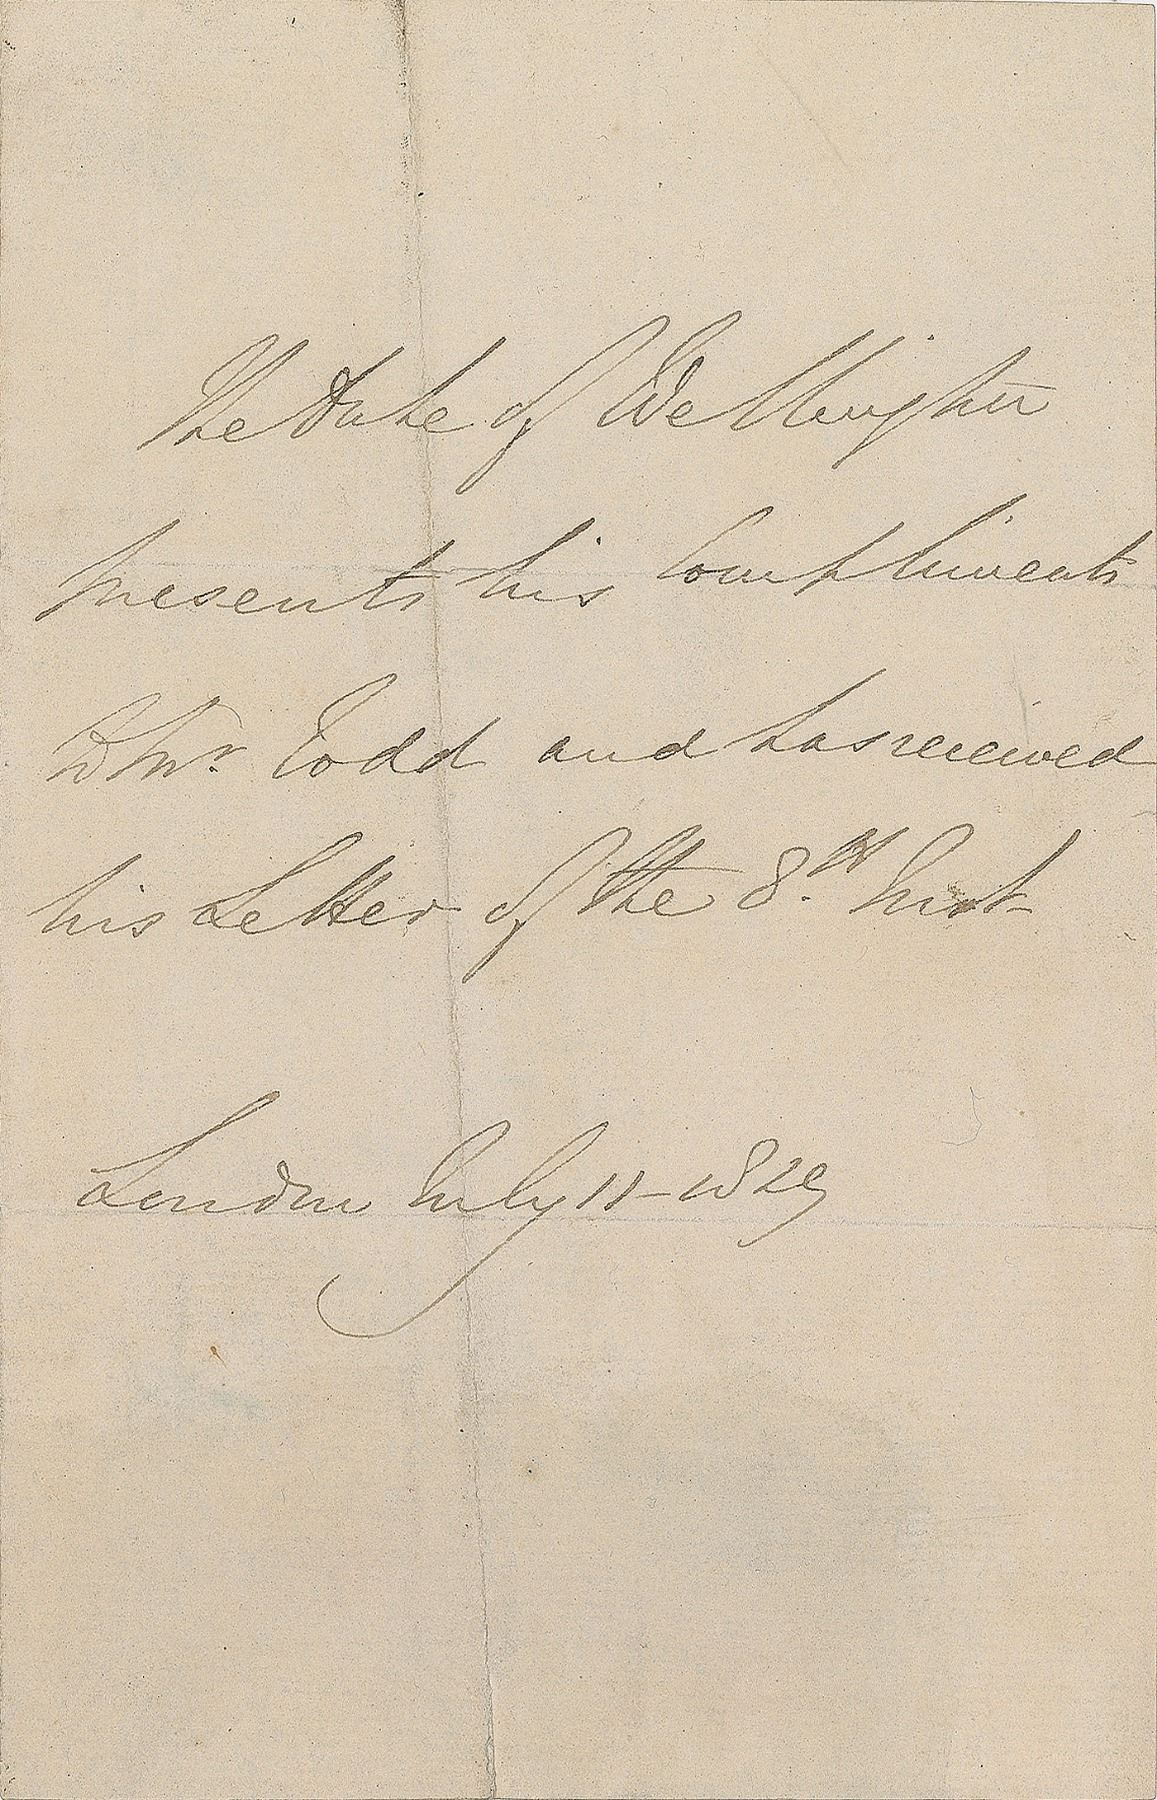 The Duke of Wellington
presents his Compliments
to Mr. Todd and has received
his Letter of the 8.th Inst
London July 11 – 1829